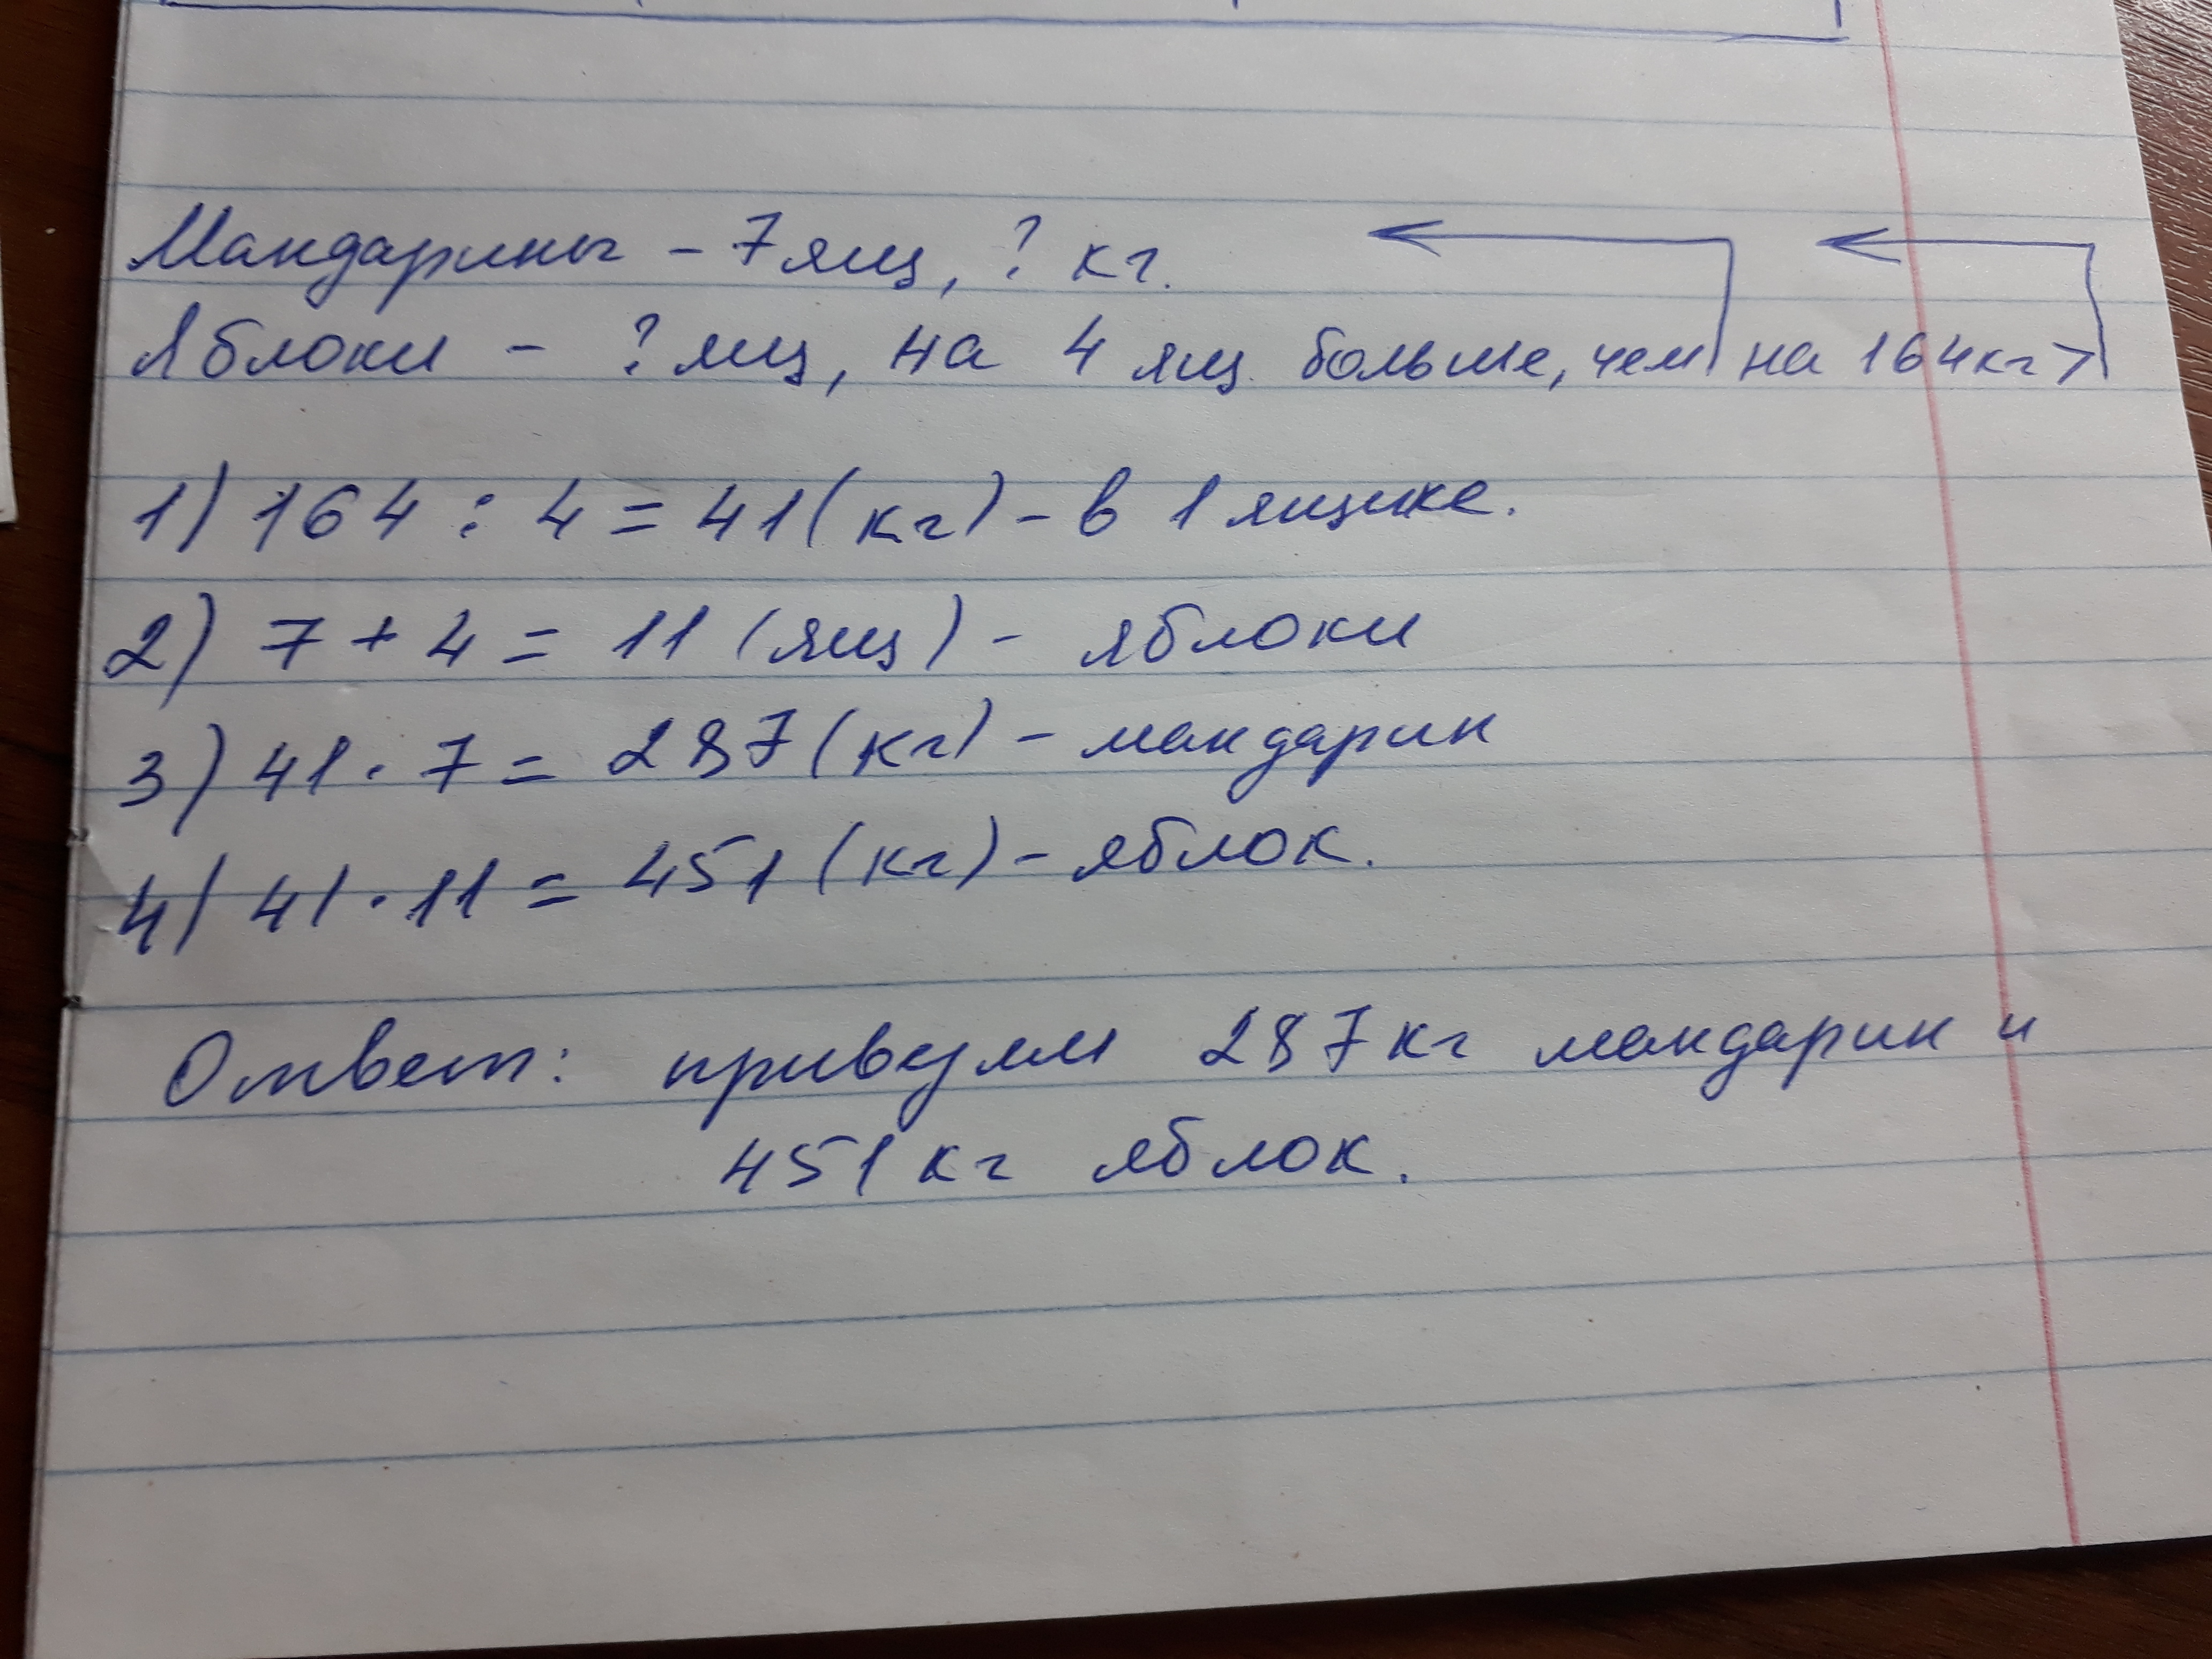 Мандарины - 7 ящ, ? кг.
Яблоки - ? ящ, на 4 ящ. больше, чем на 164кг >
1) 164 : 4 = 41 (кг) - в 1 ящике.
2) 7 + 4 = 11 (ящ) - яблоки
3) 41 · 7 = 287 (кг) - мандарин
4) 41 · 11 = 451 (кг) - яблок.
Ответ: привезли 287 кг мандарин и
451 кг яблок.